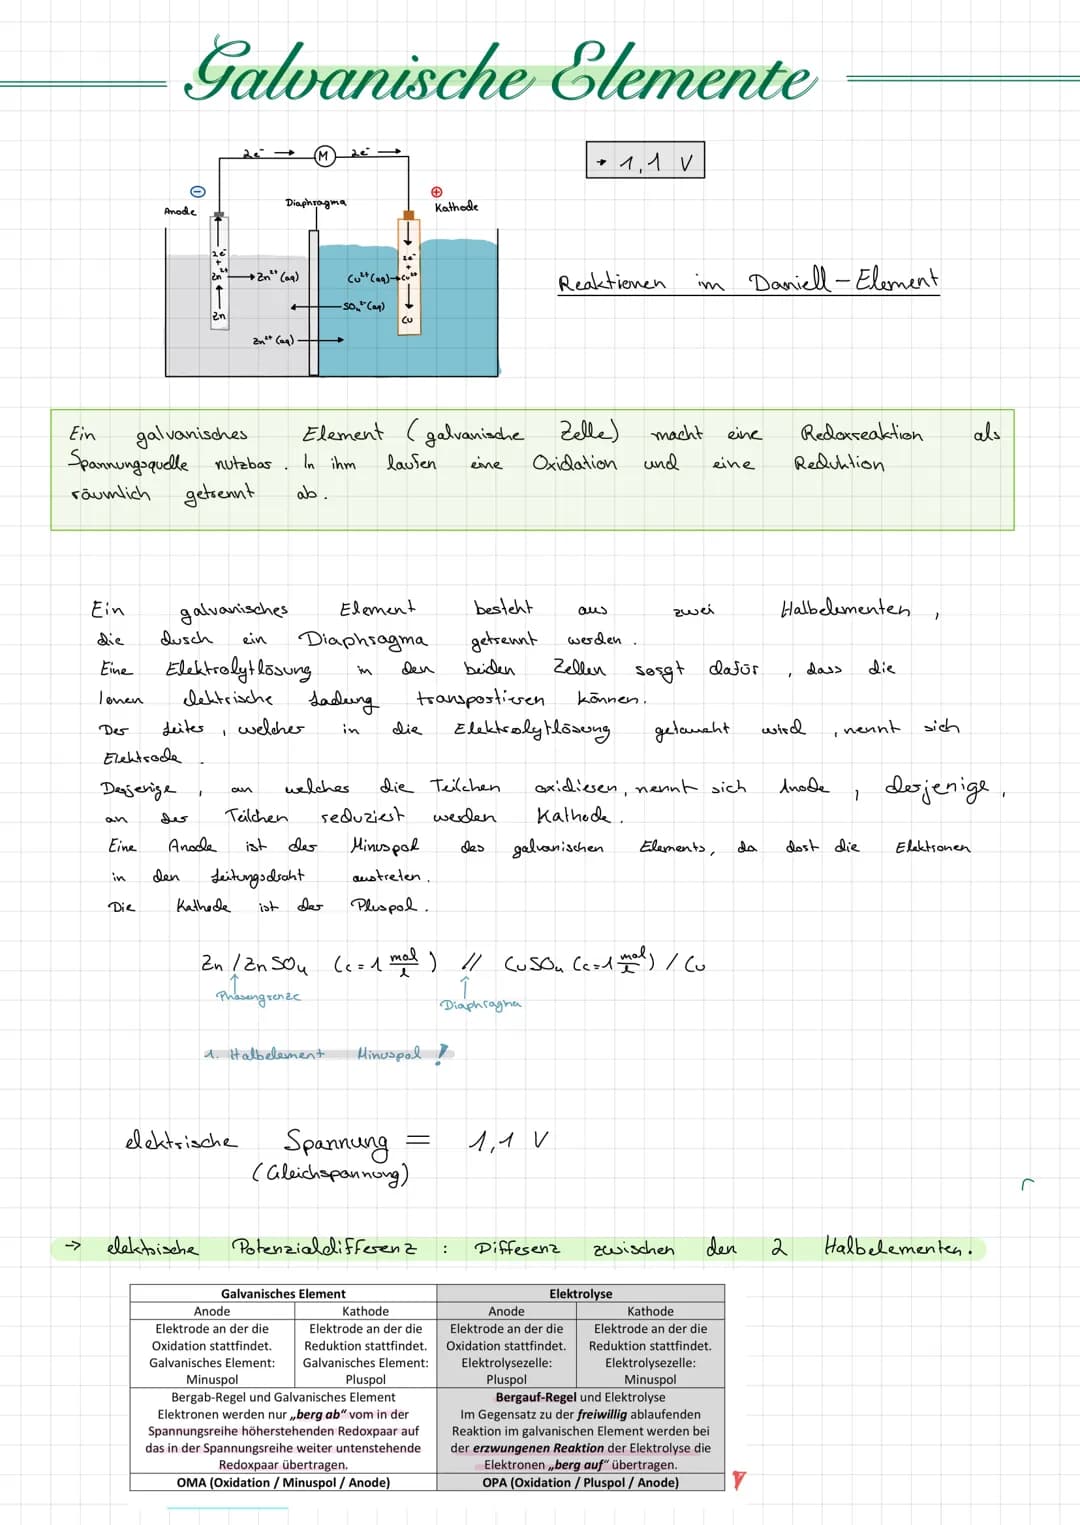 Galvanische Elemente
2e⁻ → M 2e⁻ →
→ 1,1 V
⊖
Anode
Diaphragma
⊕
Kathode
2e⁻
+
Zn²⁺ → Zn²⁺ (aq)
Zn
2e⁻
+
Cu²⁺ (aq) → Cu²⁺
SO₄²⁻ (aq)
Cu
Zn²⁺ (aq)
Reaktionen im Daniell-Element
Ein galvanisches Element (galvanische Zelle) macht eine Redoxreaktion als
Spannungsquelle nutzbar. In ihm laufen eine Oxidation und eine Reduktion
räumlich getrennt ab.
Ein galvanisches Element besteht aus zwei Halbelementen,
die durch ein Diaphragma getrennt werden.
Eine Elektrolytlösung in den beiden Zellen sorgt dafür, dass die
Ionen elektrische Ladung transportieren können.
Der Leiter, welcher in die Elektrolytlösung getaucht wird, nennt sich
Elektrode.
Derjenige, an welches die Teilchen oxidieren, nennt sich Anode, derjenige,
an der Teilchen reduziert werden Kathode.
Eine Anode ist der Minuspol des galvanischen Elements, da dort die Elektronen
in den Leitungsdraht austreten.
Die Kathode ist der Pluspol.
Zn / ZnSO₄ (c = 1 mol/l) // CuSO₄ (c = 1 mol/l) / Cu
Phasengrenze
Diaphragma
1. Halbelement Minuspol !
elektrische Spannung = 1,1 V
(Gleichspannung)
→ elektrische Potenzialdifferenz : Differenz zwischen den 2 Halbelementen.
Galvanisches Element
Elektrolyse
Anode
Kathode
Anode
Kathode
Elektrode an der die
Oxidation stattfindet.
Galvanisches Element:
Minuspol
Elektrode an der die
Reduktion stattfindet.
Galvanisches Element:
Pluspol
Elektrode an der die
Oxidation stattfindet.
Elektrolysezelle:
Pluspol
Elektrode an der die
Reduktion stattfindet.
Elektrolysezelle:
Minuspol
Bergab-Regel und Galvanisches Element
Elektronen werden nur „berg ab“ vom in der
Spannungsreihe höherstehenden Redoxpaar auf
das in der Spannungsreihe weiter untenstehende
Redoxpaar übertragen.
Bergauf-Regel und Elektrolyse
Im Gegensatz zu der freiwillig ablaufenden
Reaktion im galvanischen Element werden bei
der erzwungenen Reaktion der Elektrolyse die
Elektronen „berg auf“ übertragen.
OMA (Oxidation / Minuspol / Anode)
OPA (Oxidation / Pluspol / Anode)